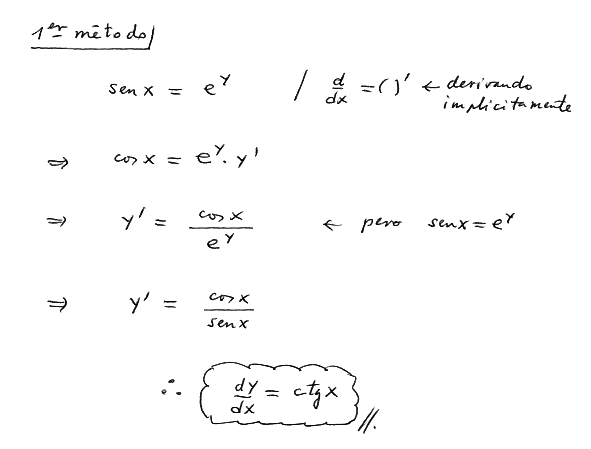 1er método/
sen x = e^y / d/dx = ( )' ← derivando implicitamente
⇒ cos x = e^y · y'
⇒ y' = cos x / e^y ← pero sen x = e^y
⇒ y' = cos x / sen x
∴ dy/dx = ctg x //.